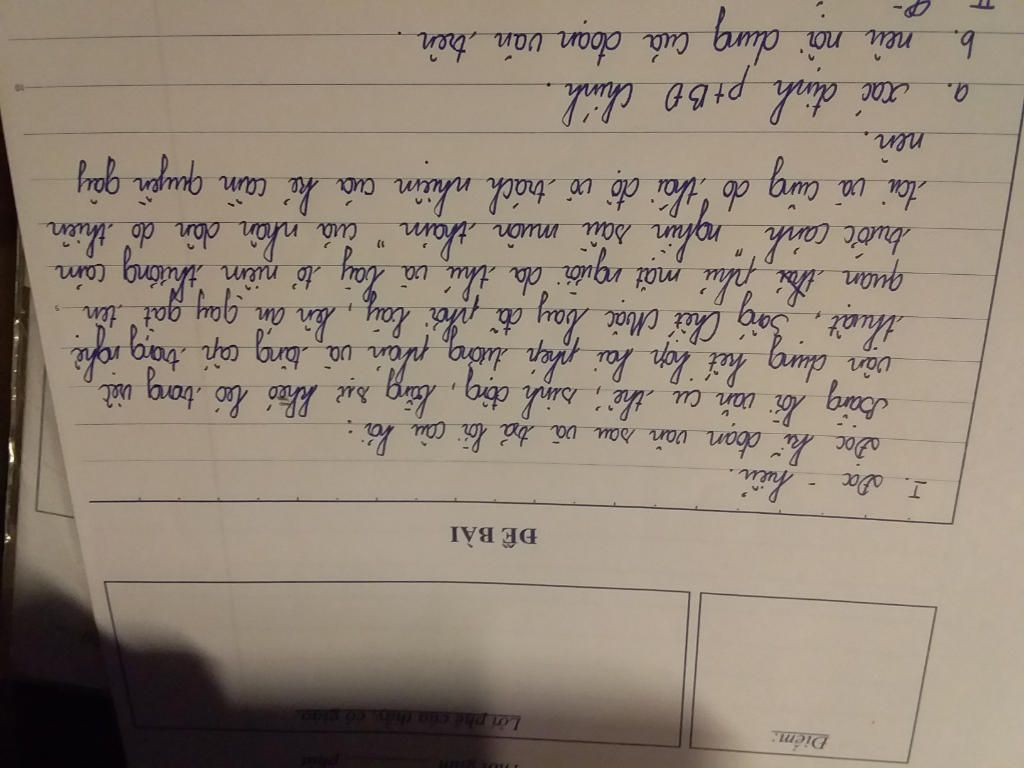 Thời gian phút
Điểm:
Lời phê của thầy, cô giáo
ĐỀ BÀI
I. Đọc - hiểu.
Đọc kĩ đoạn văn sau và trả lời câu hỏi:
Bằng lời văn cụ thể, sinh động, bằng sự khéo léo trong việc
vận dụng kết hợp hai phép tương phản và tăng cấp trong nghệ
thuật, Sống Chết Mặc bay đã phơi bày, lên án gay gắt tên
quan phủ mặt người dạ thú và bày tỏ niềm thương cảm
trước cảnh "nghìn sầu muôn thảm" của nhân dân do thiên
tai và cũng do thái độ vô trách nhiệm của kẻ cầm quyền gây
nên.
a. Xác định ptBĐ chính.
b. nêu nội dung của đoạn văn trên.
II